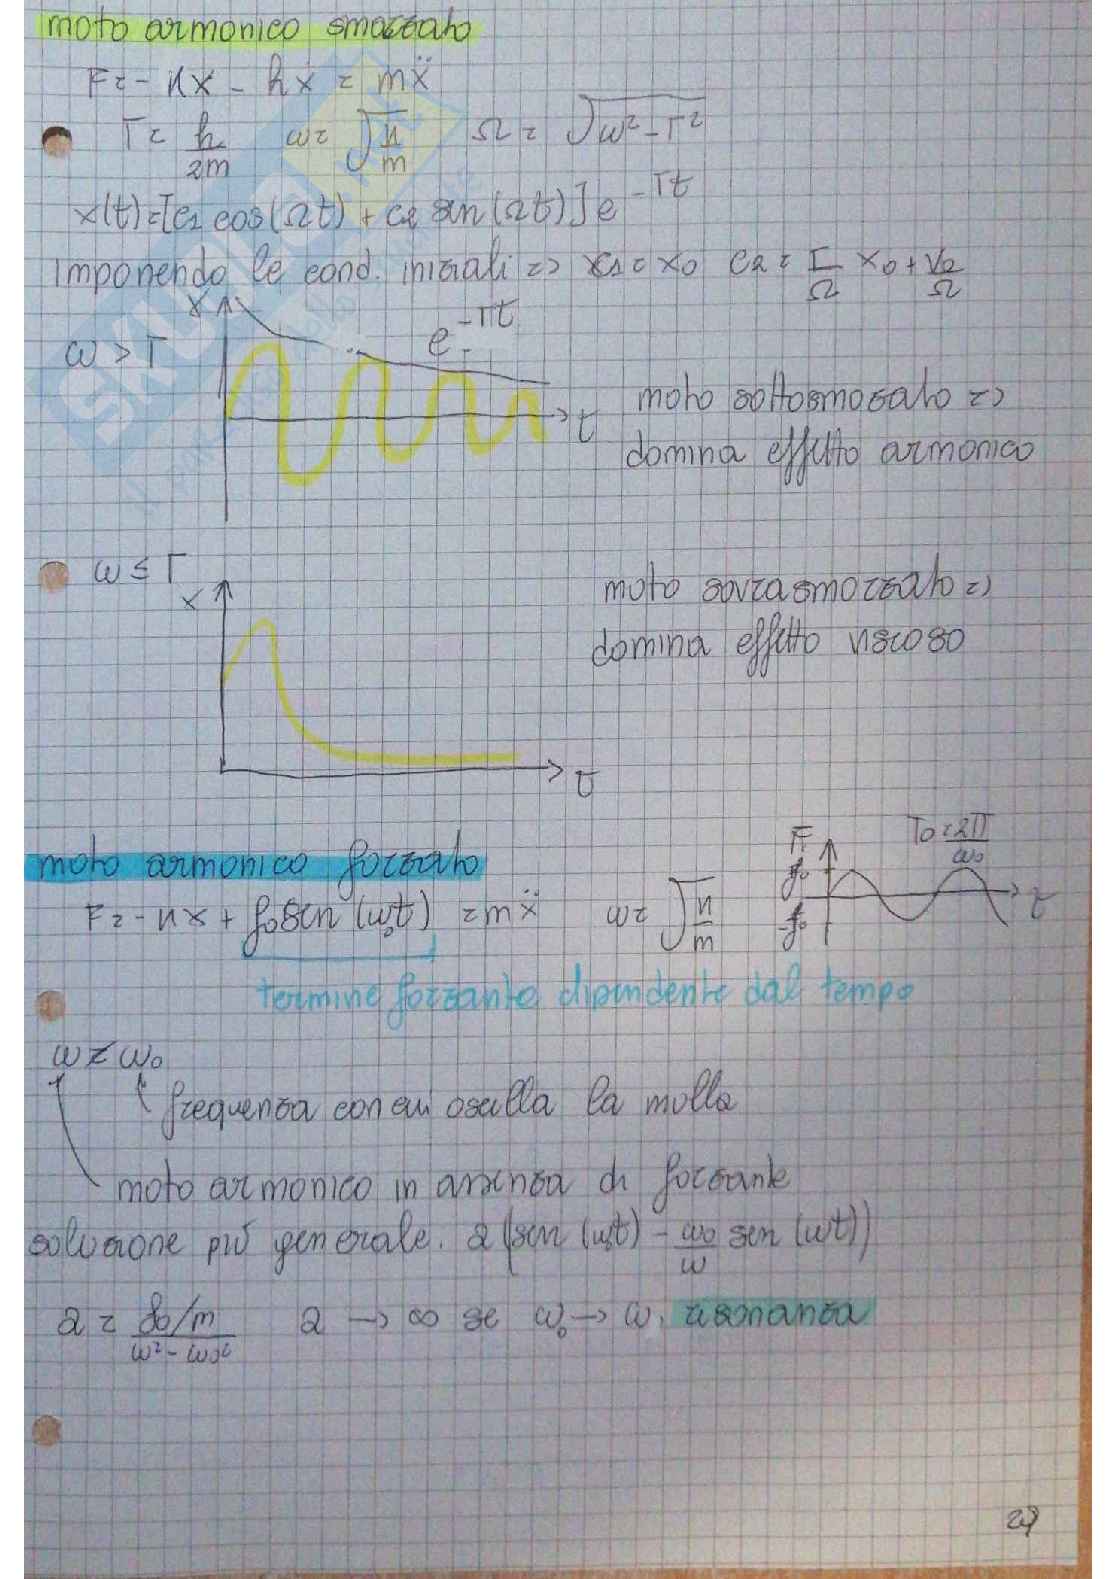 moto armonico smorzato
F = - kx - hẋ = mẍ
Γ = h/2m ω = √k/m Ω = √ω² - Γ²
x(t) = [c1 cos(Ωt) + c2 sen(Ωt)] e^-Γt
Imponendo le cond. iniziali => c1 = x0 c2 = Γ/Ω x0 + v0/Ω
x
e^-Γt
ω > Γ
t
moto sottosmorzato =>
domina effetto armonico
ω ≤ Γ
x
moto sovrasmorzato =>
domina effetto viscoso
t
moto armonico forzato
F
f0
-f0
T0 = 2π/ω0
t
F = - kx + f0 sen (ω0t) = mẍ ω = √k/m
termine forzante dipendente dal tempo
ω ≠ ω0
frequenza con cui oscilla la molla
moto armonico in assenza di forzante
soluzione più generale. a (sen (ω0t) - ω0/ω sen (ωt))
a = f0/m / ω² - ω0² a → ∞ se ω0 → ω, risonanza
SKUOLA